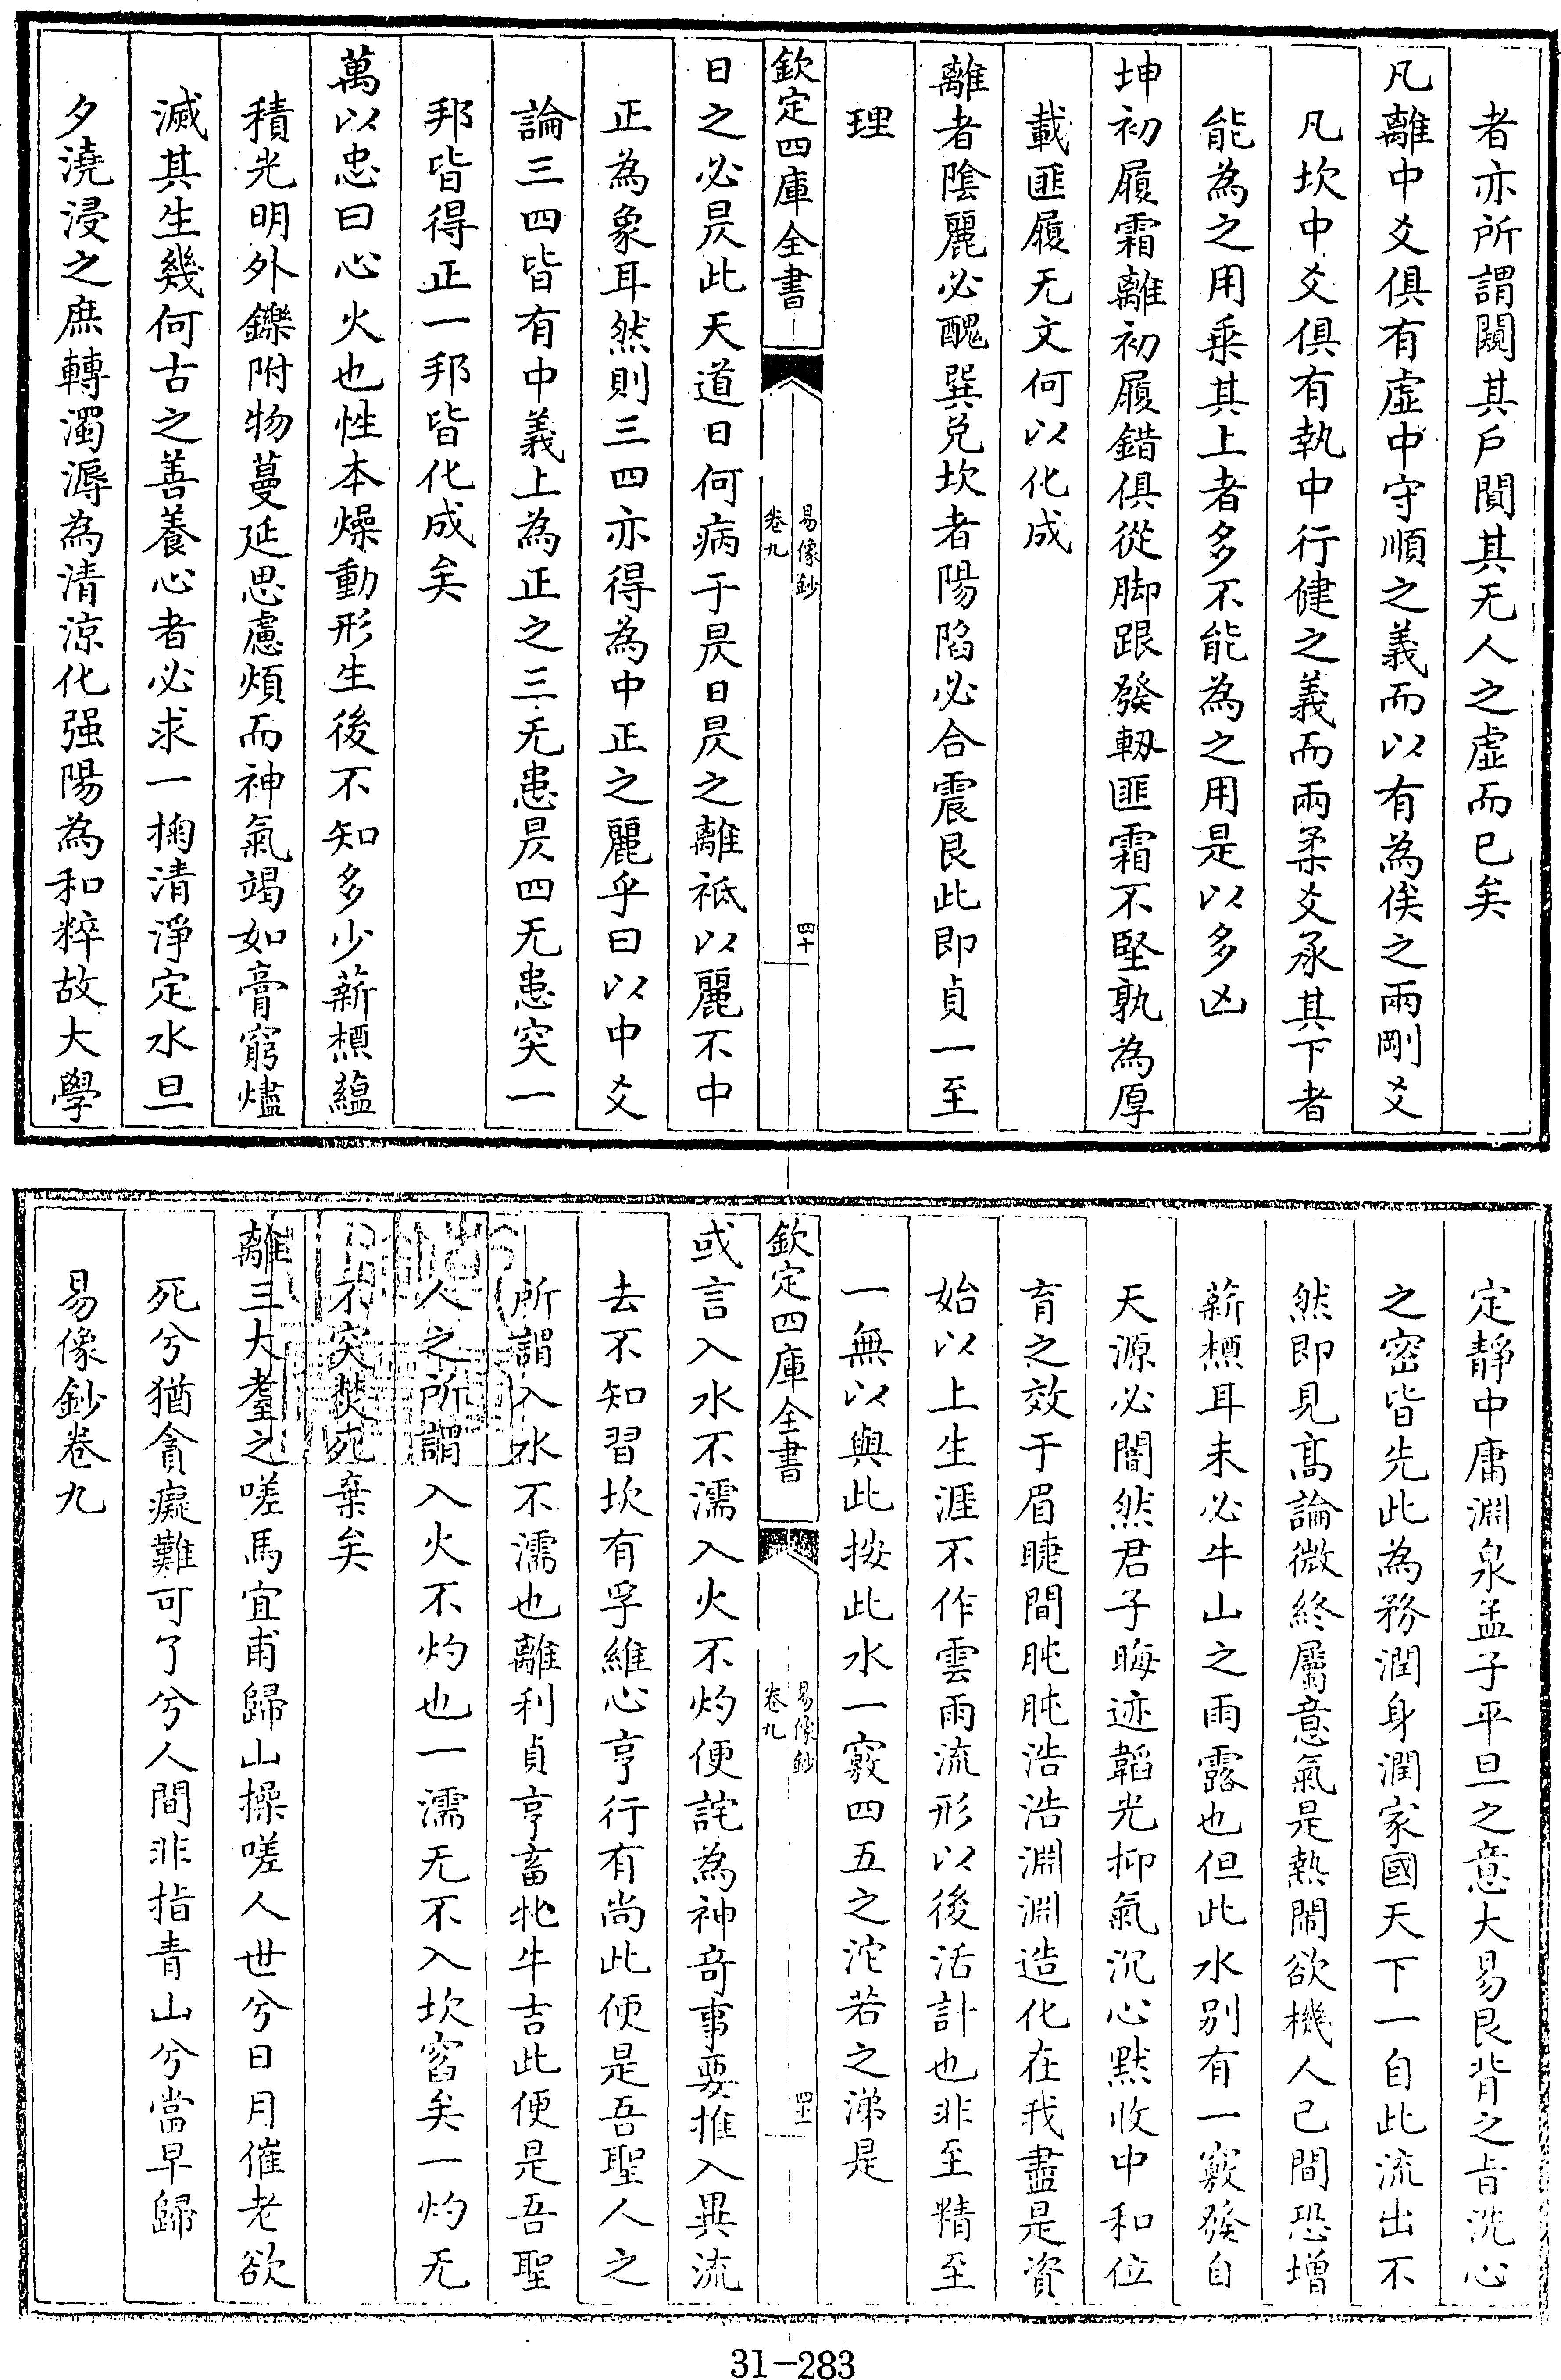 者亦所謂闚其戶闃其无人之虛而已矣
凡離中爻俱有虛中守順之義而以有為俟之兩剛爻
凡坎中爻俱有執中行健之義而兩柔爻承其下者
能為之用乘其上者多不能為之用是以多凶
坤初履霜離初履錯俱從脚跟發軔匪霜不堅孰為厚
載匪履无文何以化成
離者陰麗必醜巽兌坎者陽陷必合震艮此即貞一至
理
欽定四庫全書
易像鈔
卷九
四十
日之必昃此天道日何病于昃日昃之離祗以麗不中
正為象耳然則三四亦得為中正之麗乎曰以中爻
論三四皆有中義上為正之三无患昃四无患突一
邦皆得正一邦皆化成矣
萬以忠曰心火也性本燥動形生後不知多少薪槱蘊
積光明外鑠附物蔓延思慮煩而神氣竭如膏窮燼
滅其生幾何古之善養心者必求一掬清淨定水旦
夕澆浸之庶轉濁溽為清涼化强陽為和粹故大學
定靜中庸淵泉孟子平旦之意大易艮背之旨洗心
之密皆先此為務潤身潤家國天下一自此流出不
然即見高論微終屬意氣是熱鬧欲機人己間恐增
薪槱耳未必牛山之雨露也但此水別有一竅發自
天源必闇然君子晦迹韜光抑氣沉心默收中和位
育之效于眉睫間肫肫浩浩淵淵造化在我盡是資
始以上生涯不作雲雨流形以後活計也非至精至
一無以與此按此水一竅四五之沱若之涕是
欽定四庫全書
易像鈔
卷九
四十一
或言入水不濡入火不灼便詫為神奇事要推入異流
去不知習坎有孚維心亨行有尚此便是吾聖人之
所謂入水不濡也離利貞亨畜牝牛吉此便是吾聖
人之所謂入火不灼也一濡无不入坎窞矣一灼无
不突焚死棄矣
離三大耋之嗟馬宜甫歸山操嗟人世兮日月催老欲
死兮猶貪癡難可了兮人間非指青山兮當早歸
易像鈔卷九
31-283